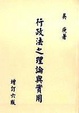 吳庚著
行政法之理論與實用
增訂六版